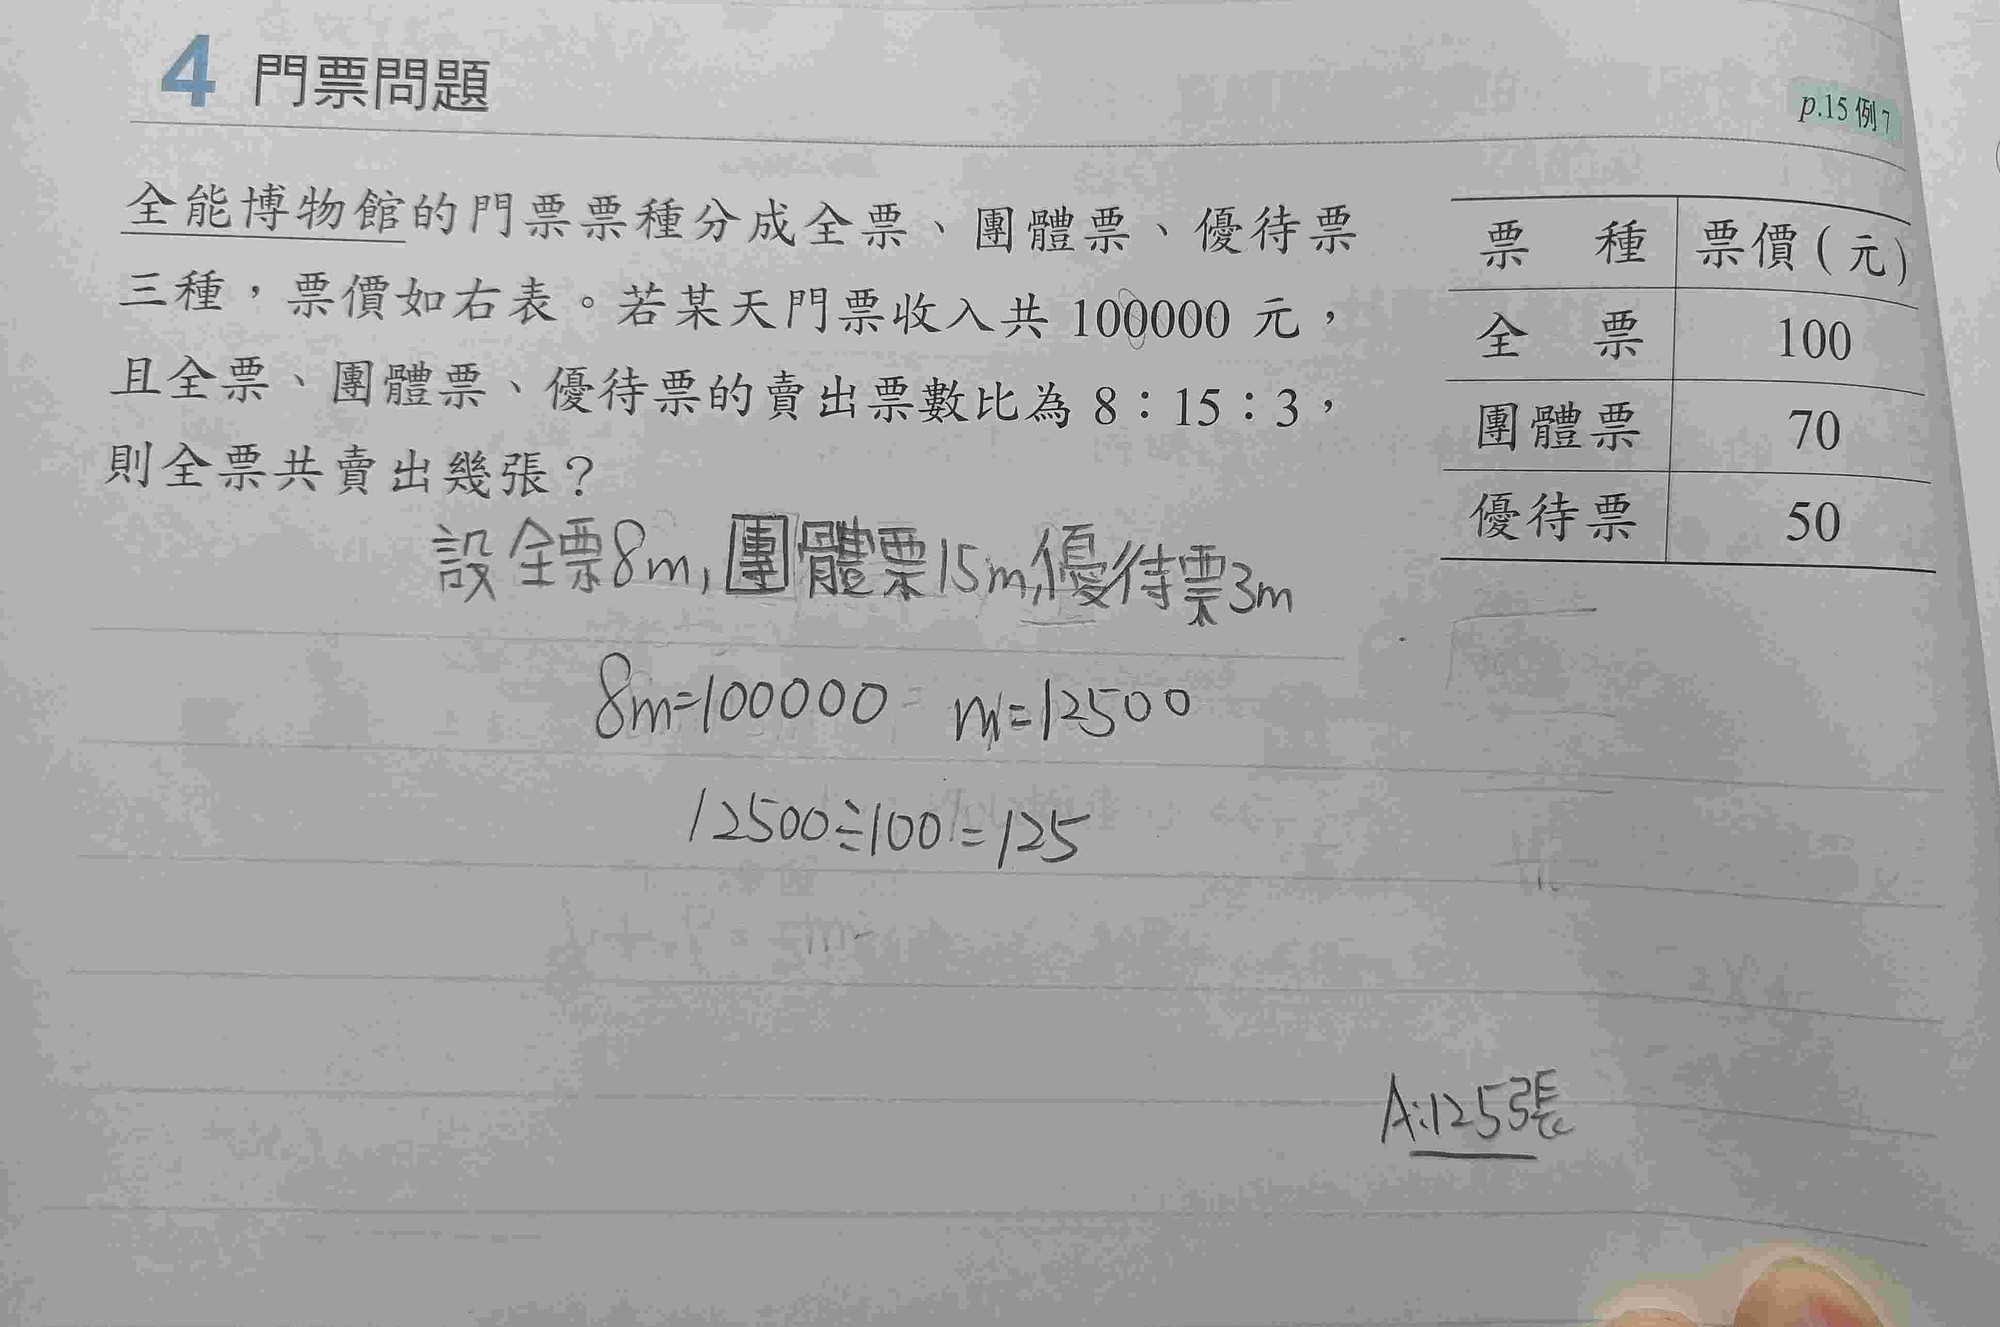 4 門票問題
p.15 例7
全能博物館的門票票種分成全票、團體票、優待票
三種，票價如右表。若某天門票收入共 100000 元，
且全票、團體票、優待票的賣出票數比為 8：15：3，
則全票共賣出幾張？
票 種 票價(元)
全 票 100
團體票 70
優待票 50
設全票8m,團體票15m,優待票3m
8m=100000 m=12500
12500÷100=125
A:125張